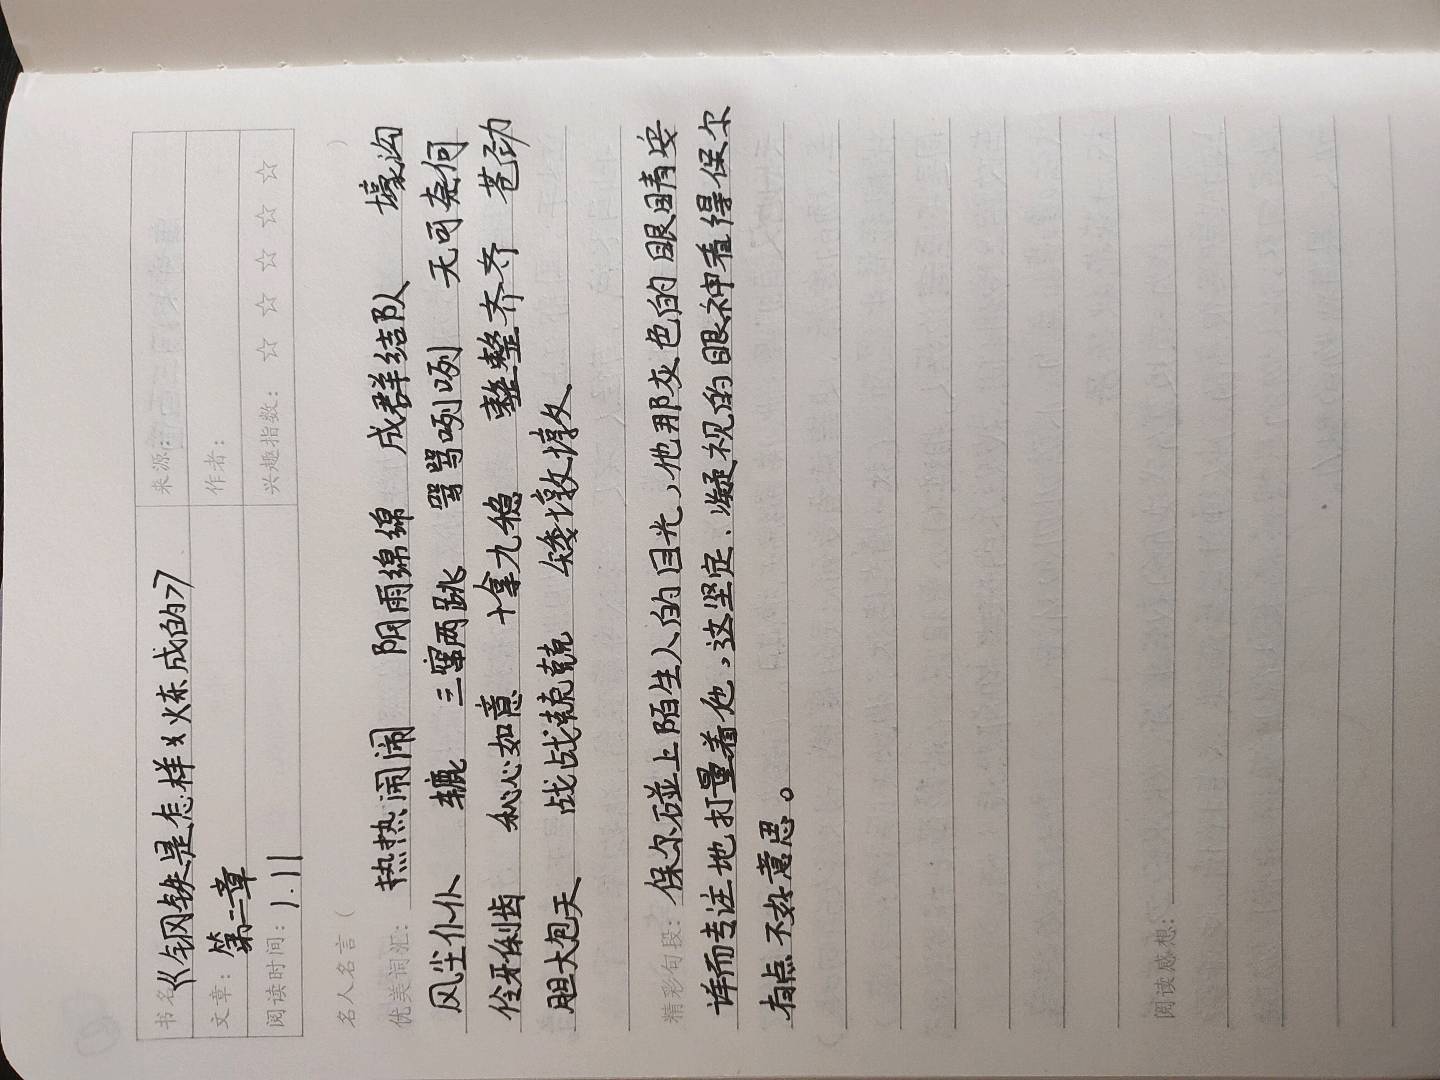 书名:《钢铁是怎样炼成的》 来源:
文章:第二章 作者:
阅读时间:1.11 兴趣指数:☆ ☆ ☆ ☆ ☆
名人名言( )
优美词汇:热热闹闹 阴雨绵绵 成群结队 壕沟
风尘仆仆 辘 三窜两跳 骂骂咧咧 无可奈何
伶牙俐齿 称心如意 十拿九稳 整整齐齐 苍劲
胆大包天 战战兢兢 矮墩墩
精彩句段:保尔碰上陌生人的目光,他那灰色的眼睛安
详而专注地打量着他,这坚定、凝视的眼神看得保尔
有点不好意思。
阅读感想: